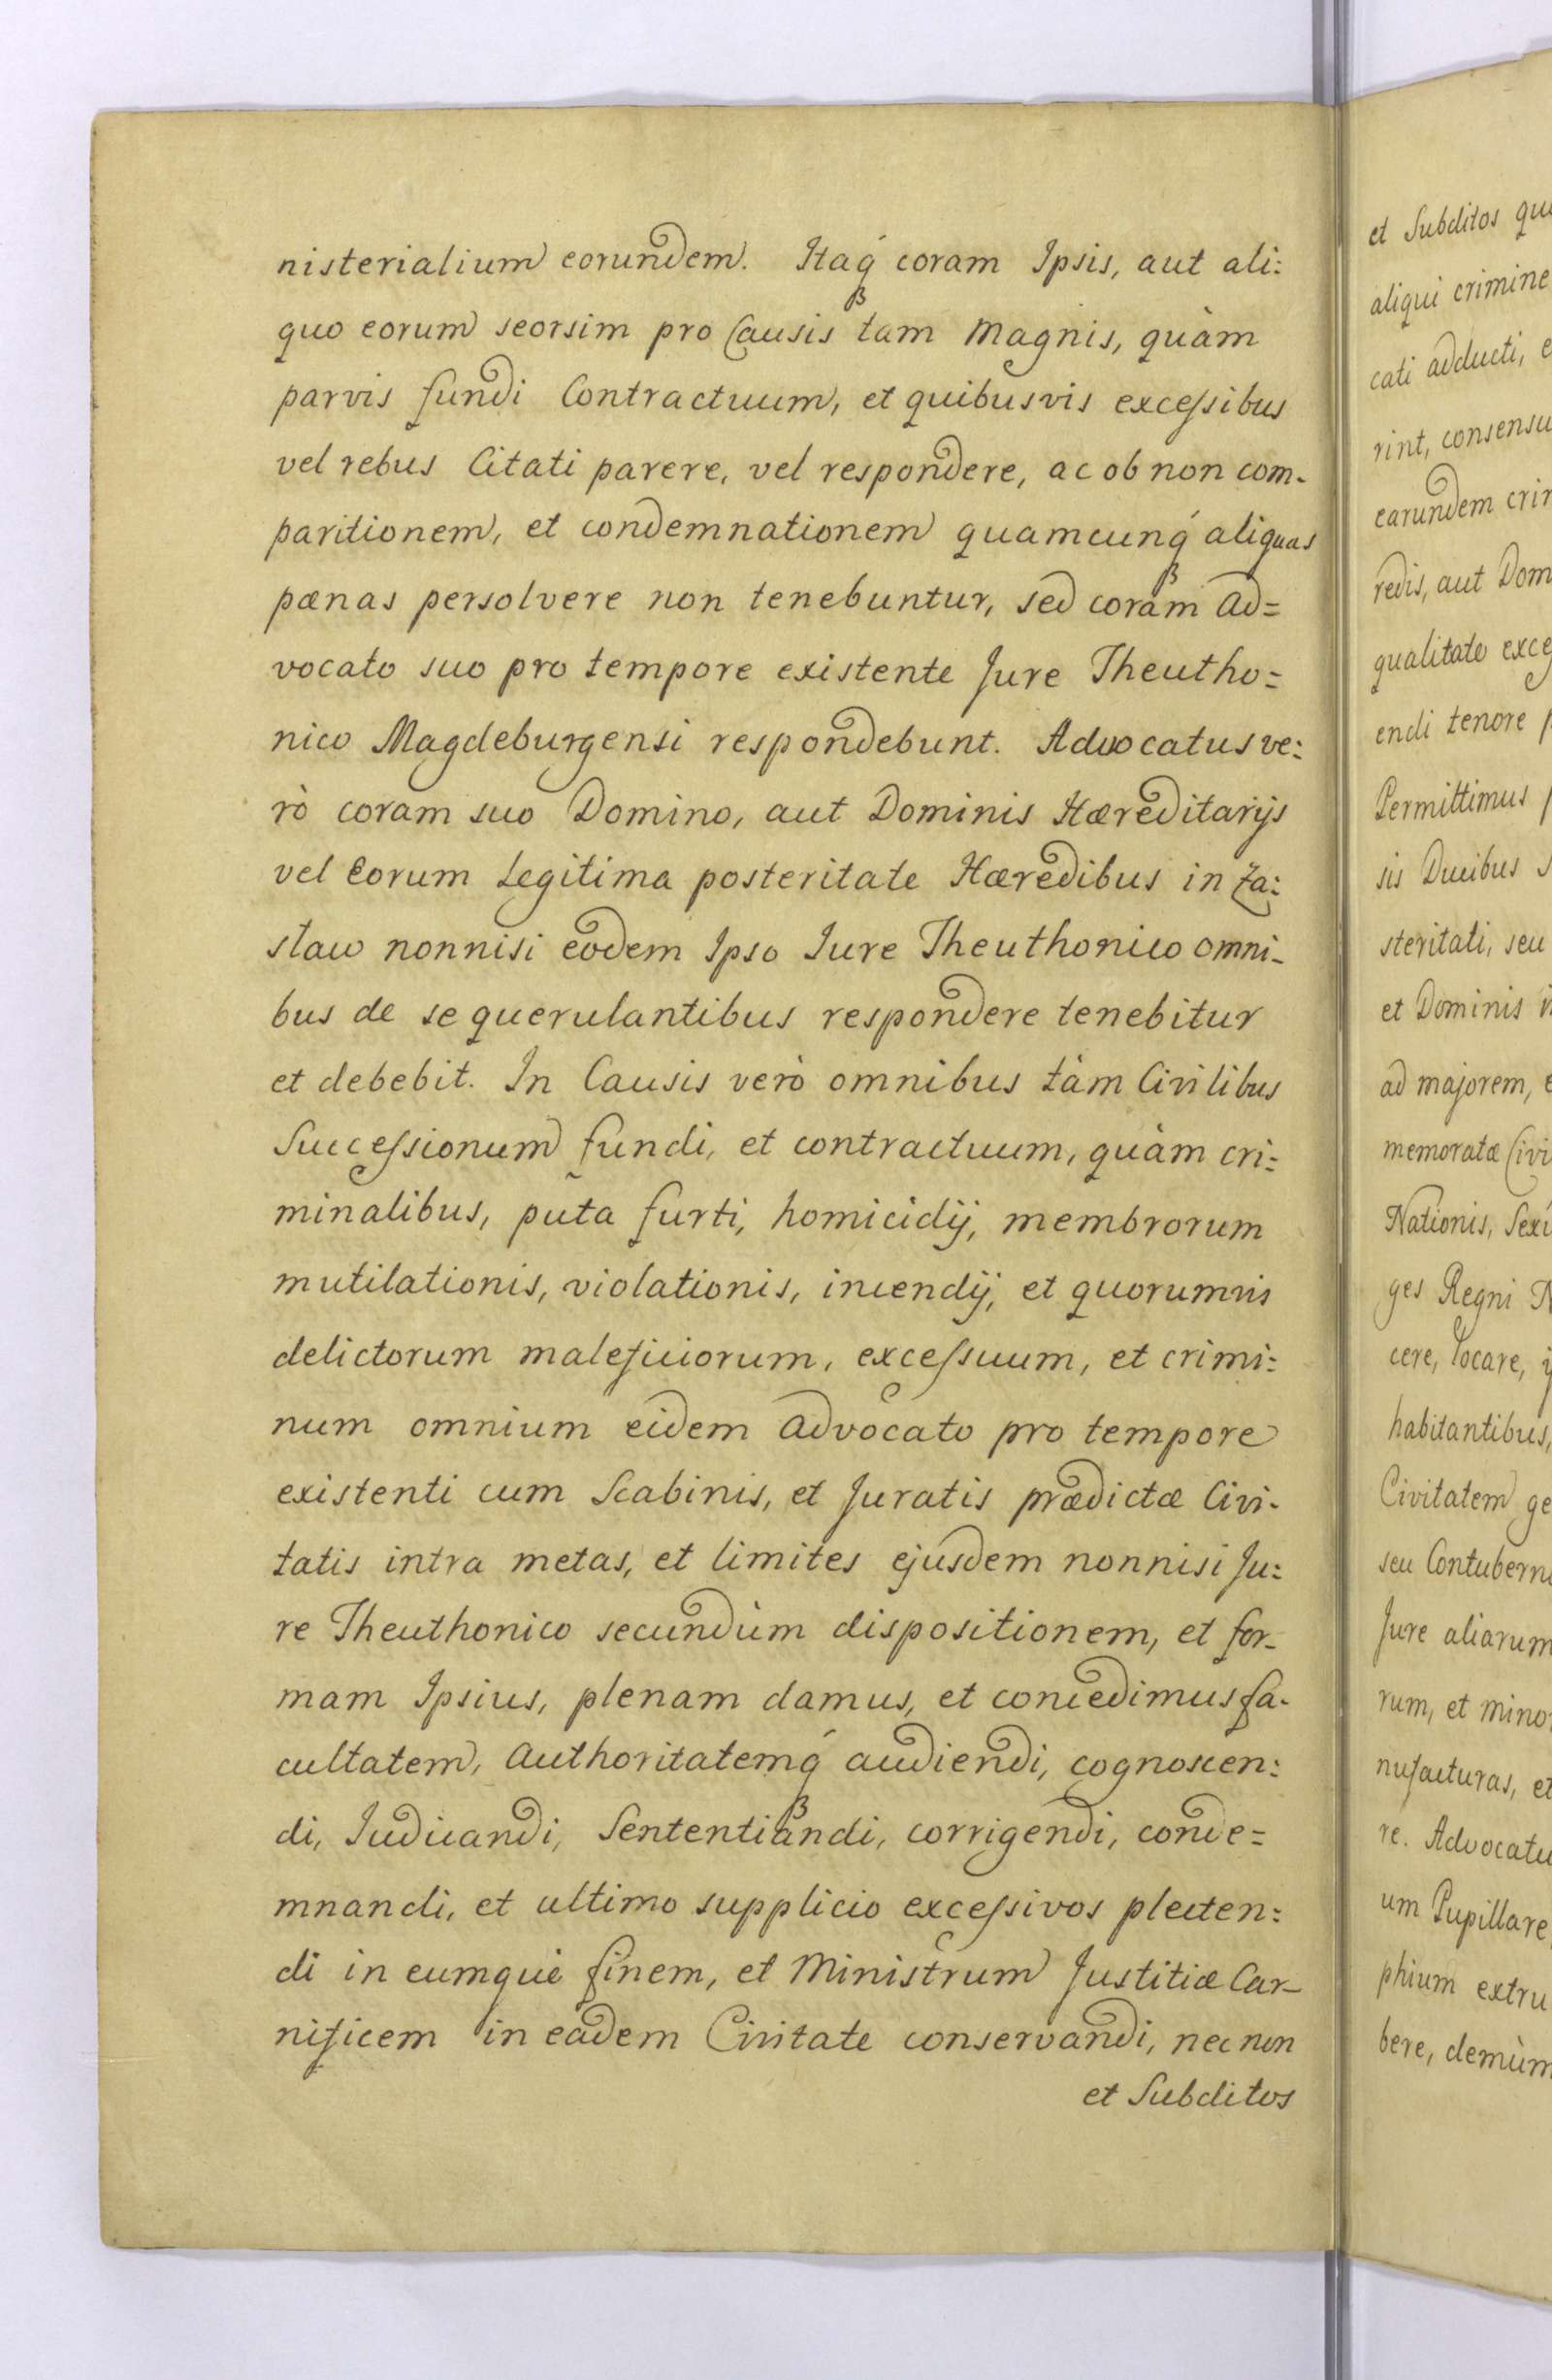 nisterialium eorundem. Itaq́ coram Ipsis, aut ali:
quo eorum seorsim pro Causis tam Magnis, quàm
parvis fundi Contractuum, et quibusvis excessibus
vel rebus Citati parere, vel respondere, ac ob non com-
paritionem, et condemnationem quamcunq́ aliquas
pænas persolvere non tenebuntur, sed coram Ad=
vocato suo pro tempore existente Jure Theutho=
nico Magdeburgensi respondebunt. Advocatus ve:
rò coram suo Domino, aut Dominis Hæreditarijs
vel Eorum Legitima posteritate Hæredibus in Za:
slaw nonnisi eodem Ipso Iure Theuthonico omni-
bus de se querulantibus respondere tenebitur
et debebit. In Causis verò omnibus tàm Civilibus
Successionum fundi, et contractuum, quàm cri:
minalibus, puta furti, homicidij, membrorum
mutilationis, violationis, incendij, et quorumvis
delictorum maleficiorum, excessuum, et crimi:
num omnium eidem Advocato pro tempore
existenti cum Scabinis, et Juratis prædictæ Civi-
tatis intra metas, et limites ejusdem nonnisi Ju:
re Theuthonico secundùm dispositionem, et for-
mam Ipsius, plenam damus, et concedimus fa-
cultatem, Authoritatemq́ audiendi, cognoscen:
di, Iudicandi, Sententiandi, corrigendi, conde=
mnandi, et ultimo supplicio excessivos plecten:
di in eumque finem, et Ministrum Justitiæ Car-
nificem in eadem Civitate conservandi, nec non
et Subditos
et Subditos
aliqui crimine
cati adducti,
rint, consensu
earundem
redis, aut
qualitate
endi tenore
Permittimus
sis Ducibus
steritati, seu
et Dominis
ad majorem,
memoratæ
Nationis,
ges Regni
cere, locare,
habitantibus,
Civitatem
seu
Jure aliarum
rum, et
nufacturas, et
re.
um Pupillare
phium
bere, demùm